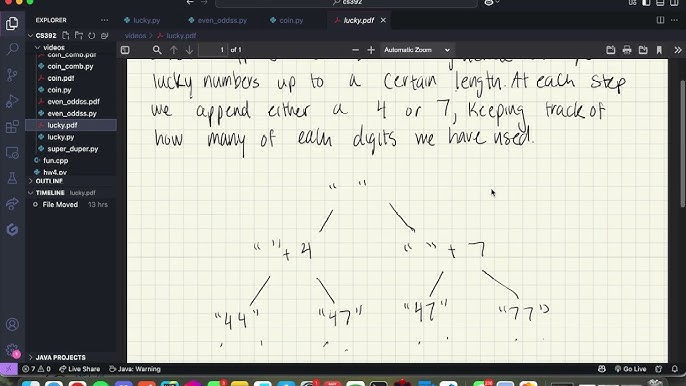 cs392
EXPLORER
lucky.py
even_oddss.py
coin.py
lucky.pdf
CS392
videos > lucky.pdf
videos
coin_comb.pdf
coin_comb.py
coin.pdf
coin.py
even_oddss.pdf
even_oddss.py
lucky.pdf
lucky.py
super_duper.py
fun.cpp
hw4.py
OUTLINE
TIMELINE lucky.pdf
File Moved 13 hrs
JAVA PROJECTS
1 of 1
Automatic Zoom
lucky numbers up to a certain length. At each step
we append either a 4 or 7, keeping track of
how many of each digits we have used.
" "
" " + 4 " " + 7
"44" "47" "47" "77"
7 0 Live Share Java: Warning Go Live Prettier